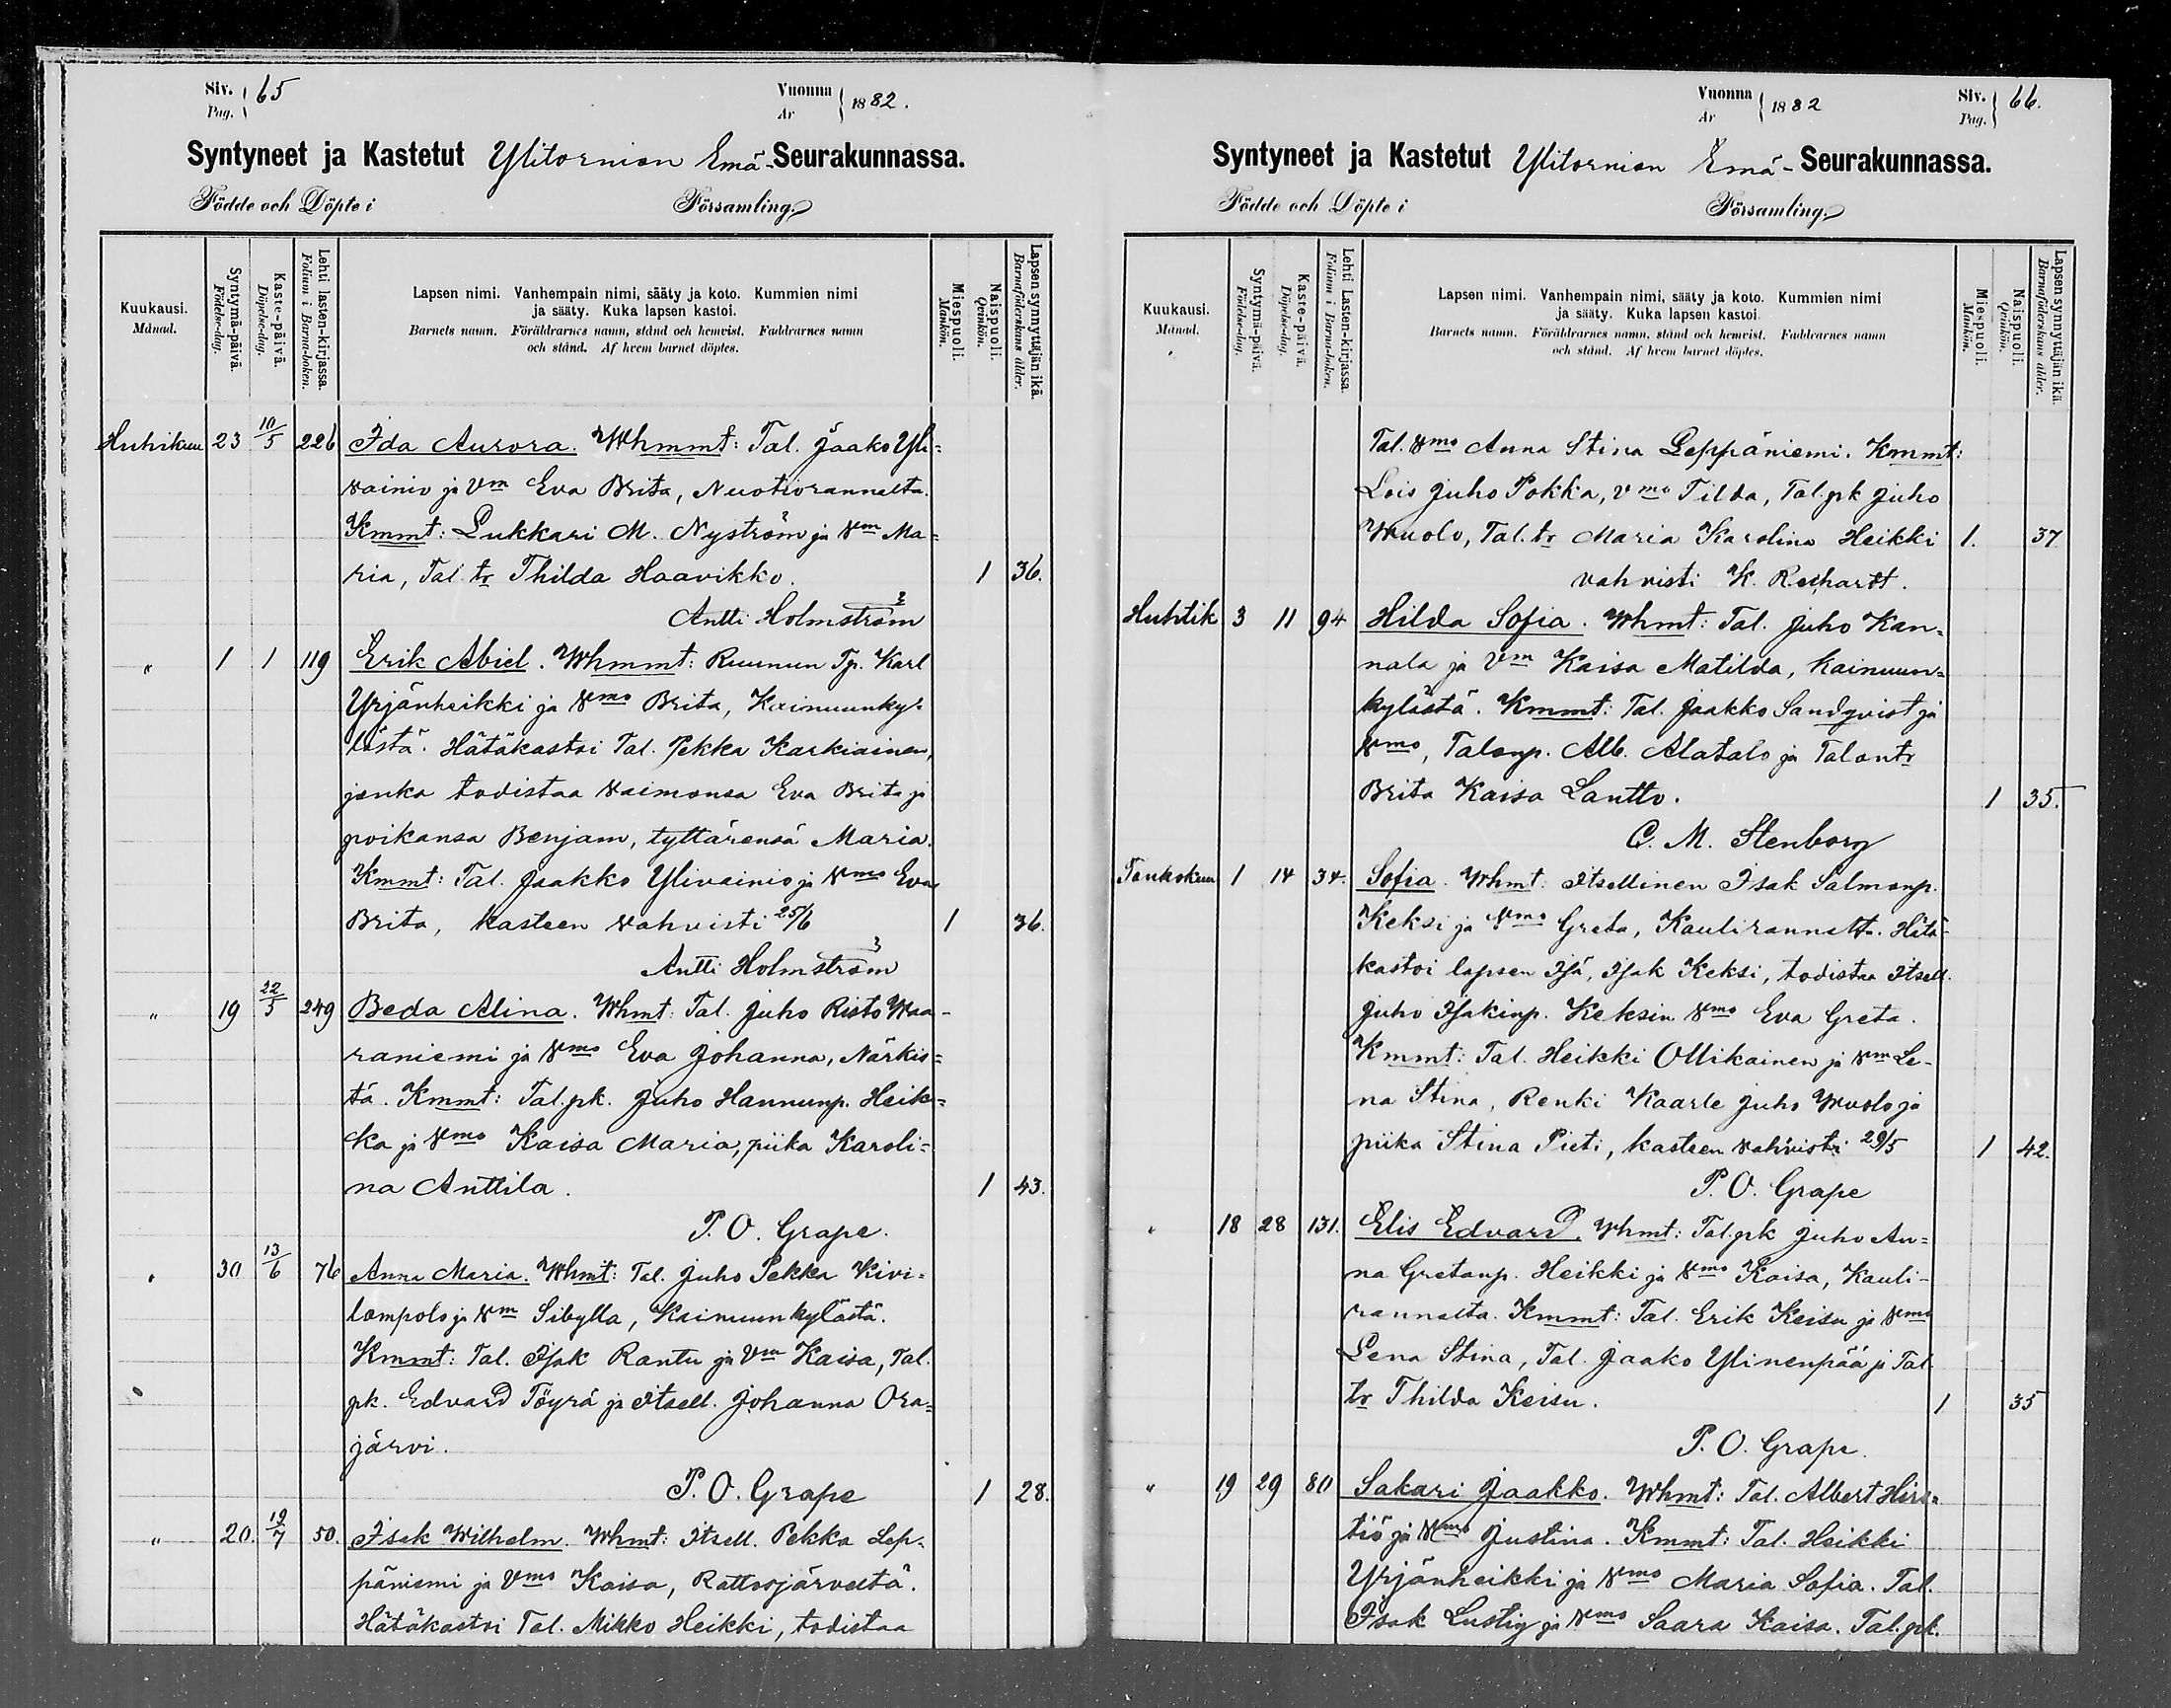 Siv. 65
Pag.
Vuonna 1882.
År
Syntyneet ja Kastetut Ylitornion Emä-Seurakunnassa.
Födde och Döpte i Församling.
Kuukausi.
Månad.
Syntymä-päivä.
Födelse-dag.
Kaste-päivä.
Döpelse-dag.
Lehti lasten-kirjassa.
Folium i Barna-boken.
Lapsen nimi. Vanhempain nimi, sääty ja koto. Kummien nimi
ja sääty. Kuka lapsen kastoi.
Barnets namn. Föräldrarnes namn, stånd och hemvist. Faddrarnes namn
och stånd. Af hvem barnet döptes.
Miespuoli.
Mankön.
Naispuoli.
Qvinkön.
Lapsen synnyttäjän ikä.
Barnaföderskans ålder.
Huhtikuu 23 10/5 226 Ida Aurora. Whmmt: Tal. Jaako Yli-
vainio ja Vm Eva Brita, Nuotiorannalta.
Kmmt: Lukkari M. Nyström ja Vm Ma-
ria, Tal. tr Thilda Haavikko. 1 36.
Antti Holmström
" 1 1 119 Erik Abiel. Whmmt: Ruunun Tp. Karl
Yrjänheikki ja Vmo Brita, Kainuunky-
lästä. Hätäkastoi Tal. Pekka Karkiainen,
jonka todistaa vaimonsa Eva Brita ja
poikansa Benjam, tyttärensä Maria.
Kmmt: Tal. Jaakko Ylivainio ja Vmo Eva
Brita, kasteen vahvisti 25/6 1 36.
Antti Holmström
" 19 22/5 249 Beda Alina. Whmt: Tal. Juho Risto Waa-
raniemi ja Vmo Eva Johanna, Närkis-
tä. Kmmt: Tal. pk. Juho Hannunp. Heik-
ka ja Vmo Kaisa Maria, piika Karoli-
na Anttila. 1 43.
P. O. Grape.
" 30 13/6 76 Anna Maria. Whmt: Tal. Juho Pekka Kivi-
lompolo ja Vm Sibylla, Kainuunkylästä.
Kmmt: Tal. Isak Rantu ja Vm Kaisa, Tal.
pk. Edvard Töyrä ja Itsell. Johanna Ora-
järvi.
P. O. Grape 1 28.
" 20. 19/7 50. Isak Wilhelm. Whmt: Itsell. Pekka Lep-
päniemi ja Vmo Kaisa, Rattosjärveltä.
Hätäkastoi Tal. Mikko Heikki, todistaa
Vuonna 1882
År
Siv. 66.
Pag.
Syntyneet ja Kastetut Ylitornion Emä-Seurakunnassa.
Födde och Döpte i Församling.
Kuukausi.
Månad.
Syntymä-päivä.
Födelse-dag.
Kaste-päivä.
Döpelse-dag.
Lehti Lasten-kirjassa.
Folium i Barna-boken.
Lapsen nimi. Vanhempain nimi, sääty ja koto. Kummien nimi
ja sääty. Kuka lapsen kastoi.
Barnets namn. Föräldrarnes namn, stånd och hemvist. Faddrarnes namn
och stånd. Af hvem barnet döptes.
Miespuoli.
Mankön.
Naispuoli.
Qvinkön.
Lapsen synnyttäjän ikä.
Barnaföderskans ålder.
Tal. Vmo Anna Stina Leppäniemi. Kmmt:
Lois Juho Pokka, Vmo Tilda, Tal. pk Juho
Wuolo, Tal. tr Maria Karolina Heikki 1. 37
vahvisti K.
Huhtik 3 11 94 Hilda Sofia. Whmt: Tal. Juho Kan-
nala ja Vm Kaisa Matilda, Kainuun-
kylästä. Kmmt: Tal. Jaakko Sandqvist ja
Vmo, Talonp. Alb. Alatalo ja Talontr
Brita Kaisa Lantto. 1 35.
C. M. Stenborg
Toukokuu 1 14 34. Sofia. Whmt: Itsellinen Isak Salmonp.
Keksi ja Vmo Greta, Kaulirannalta. Hätä-
kastoi lapsen Isä, Isak Keksi, todistaa Itsell.
Juho Isakinp. Keksin Vmo Eva Greta.
Kmmt: Tal. Heikki Ollikainen ja Vm Le-
na Stina, Renki Kaarle Juho Wuolo ja
piika Stina Pieti, kasteen vahvisti 29/5 1 42.
P. O. Grape
" 18 28 131. Elis Edvard. Whmt: Tal. pk Juho An-
na Gretanp. Heikki ja Vmo Kaisa, Kauli-
rannalta. Kmmt: Tal. Erik Keisu ja Vmo
Lena Stina, Tal. Jaako Ylinenpää ja Tal.
tr Thilda Keisu. 1 35
P. O. Grape.
" 19 29 80 Sakari Jaakko. Whmt: Tal. Albert Hirs-
tiö ja Vmo Justina. Kmmt: Tal. Heikki
Yrjänheikki ja Vmo Maria Sofia. Tal.
Isak Lustig ja Vmo Saara Kaisa. Tal. pk.